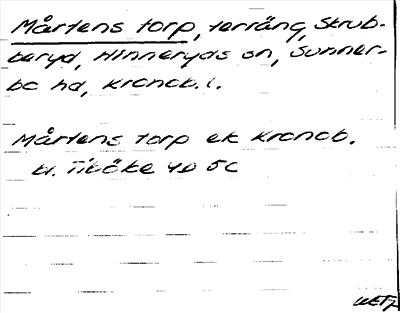 Mårtens torp, terräng, Skrub-
beryd, Hinneryds sn, Sunner-
bo hd, Kronob. l.
Mårtens torp ek Kronob.
bl. Tiböke 4D 5c